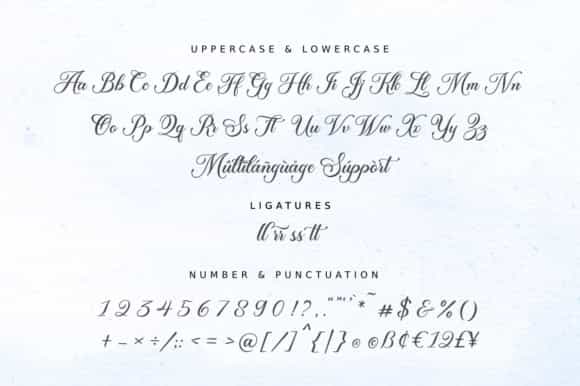 UPPERCASE & LOWERCASE
Aa Bb Cc Dd Ee Ff Gg Hh Ii Jj Kk Ll Mm Nn
Oo Pp Qq Rr Ss Tt Uu Vv Ww Xx Yy Zz
Múltiláñgùáge Súppòrt
LIGATURES
ll rr ss tt
NUMBER & PUNCTUATION
1234567890!?,.""''`*~#$&%()
+-×÷/;:<=>@[/]^{|}®©ß¢€12£¥